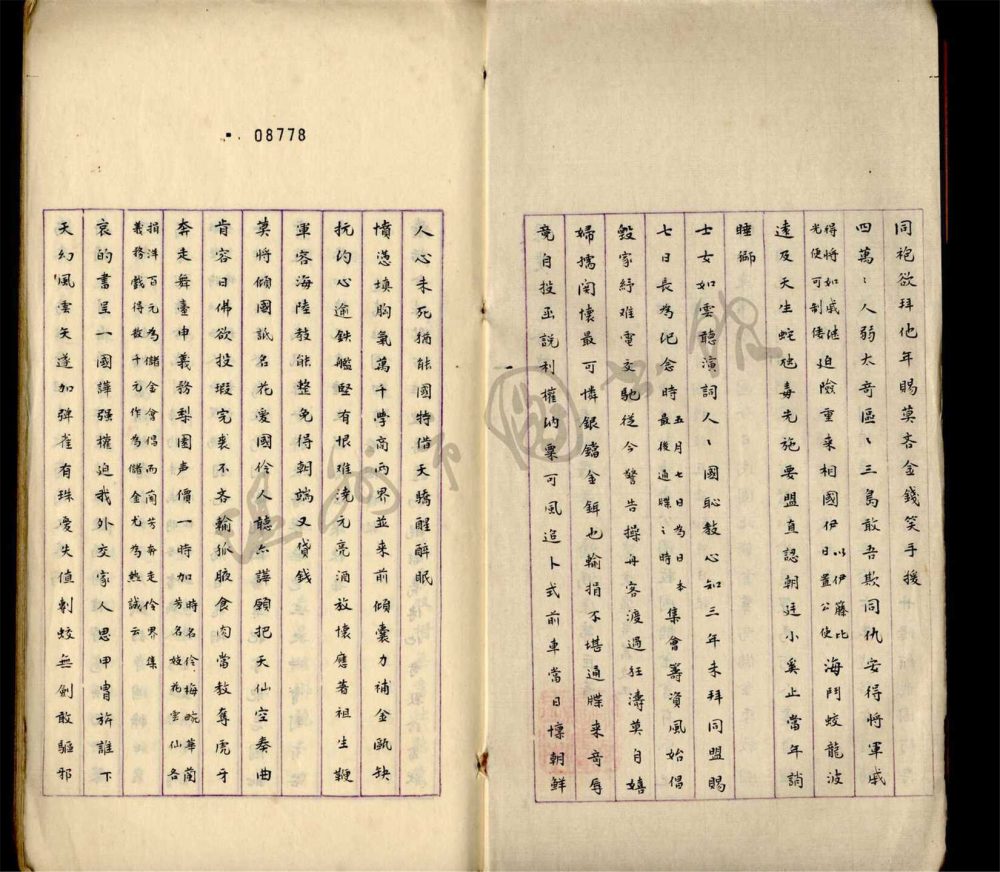 同袍欲拜他年賜莫吝金錢笑手援
四萬〻人弱太奇區〻三島敢吾欺同仇安得將軍戚
得將如戚继光使可制倭迫險重来相國伊以伊藤比日置公使海門蛟龍波
遠及天生蛇虺毒先施要盟直認朝廷小奚止當年誚
睡獅
士女如雲聽演詞人〻國恥敎心知三年未拜同盟賜
七日長為纪念時五月七日為日本最後通牒之時集會籌資風始倡
毀家紓难電交馳從今警告操舟客渡過狂濤莫自嬉
婦孺関懷最可憐銀鐺金鉺也輸捐不堪通牒来奇辱
竟自投函説利權的粟可風追卜式前車當日懐朝鮮
08778
人心未死猶能國特借天驕醒醉眠
憤懣塡胸氣萬千學高両界並来前傾囊力補金甌缺
抚灼心逾鉄艦堅有恨难澆元亮酒放懷應著祖生鞭
軍容海陸敎能整免得朝端又貸錢
莫將傾國詆名花愛國伶人聽亦譁願把天仙空奏曲
肯容日佛欲投瑕完裘不吝輸狐腋食肉當敎奪虎牙
奔走舞臺申義務梨園声價一時加時名伶梅畹華蘭芳名妓花雲仙各
捐洋百元為儲金會倡而蘭芳奔走伶界集義務戲得数千元作為儲金尤為热誠云
哀的書呈一國譁强權迫我外交家人思甲胄旂誰下
天幻風雲矢遂加弹雀有珠爱失值剌蛟無劍敢驅邪
温州市圖書館